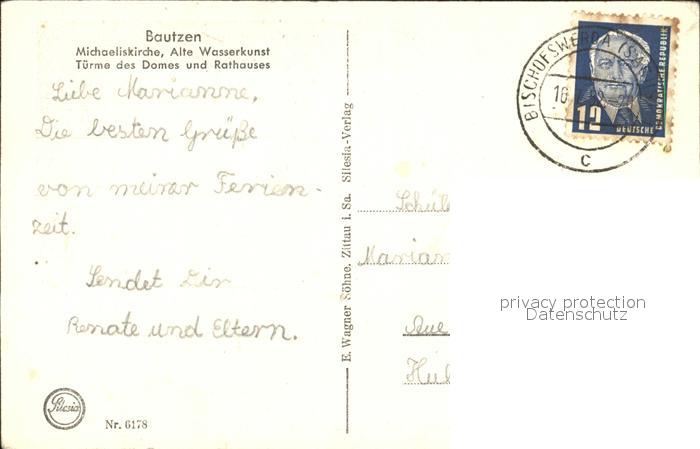 Bautzen
Michaeliskirche, Alte Wasserkunst
Türme des Domes und Rathauses
Liebe Marianne,
Die besten Grüße
von meiner Ferien-
zeit.
Sendet Dir
Renate und Eltern.
Silesia
Nr. 6178
E. Wagner Söhne, Zittau i. Sa. Silesia-Verlag
BISCHOFSWERDA (SA
16
C
12
DEUTSCHE
DEMOKRATISCHE REPUBLIK
Schüle
Marian
Aue
privacy protection
Datenschutz